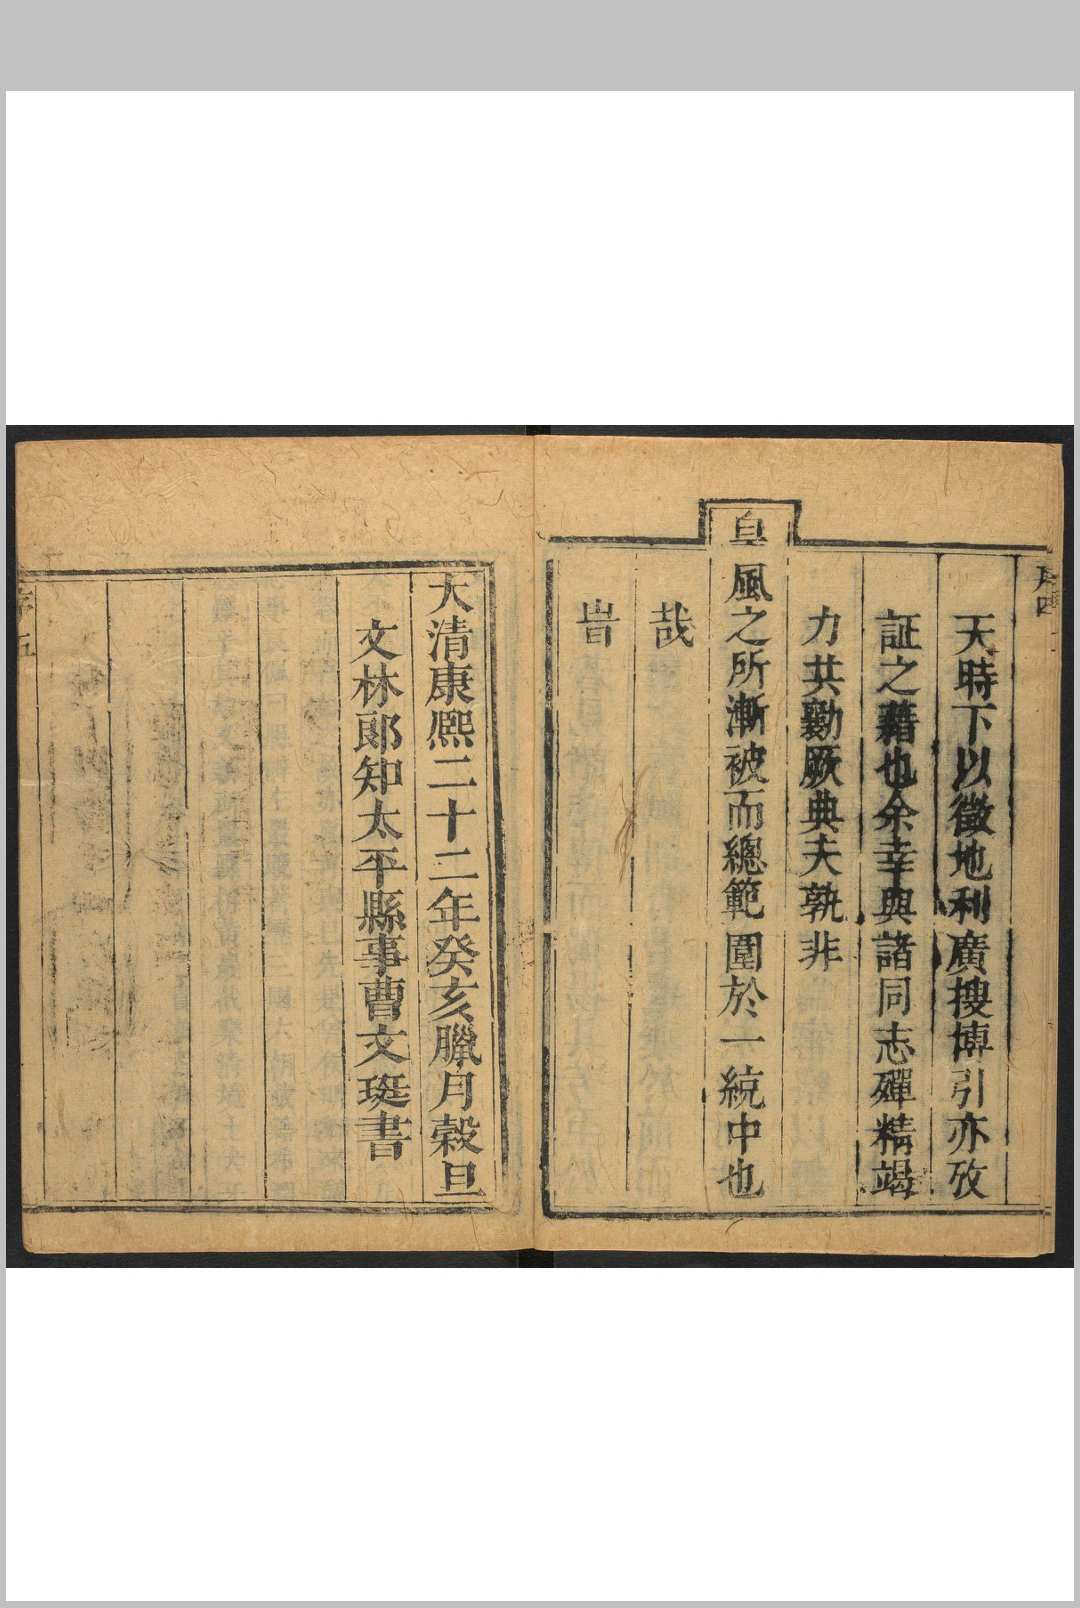 序四
天時下以徵地利廣搜博引亦攷
証之藉也余幸與諸同志殫精竭
力共勷厥典夫孰非
皇風之所漸被而總範圍於一統中也
哉
旹
大清康熙二十二年癸亥臘月穀旦
文林郎知太平縣事曹文珽書
序五